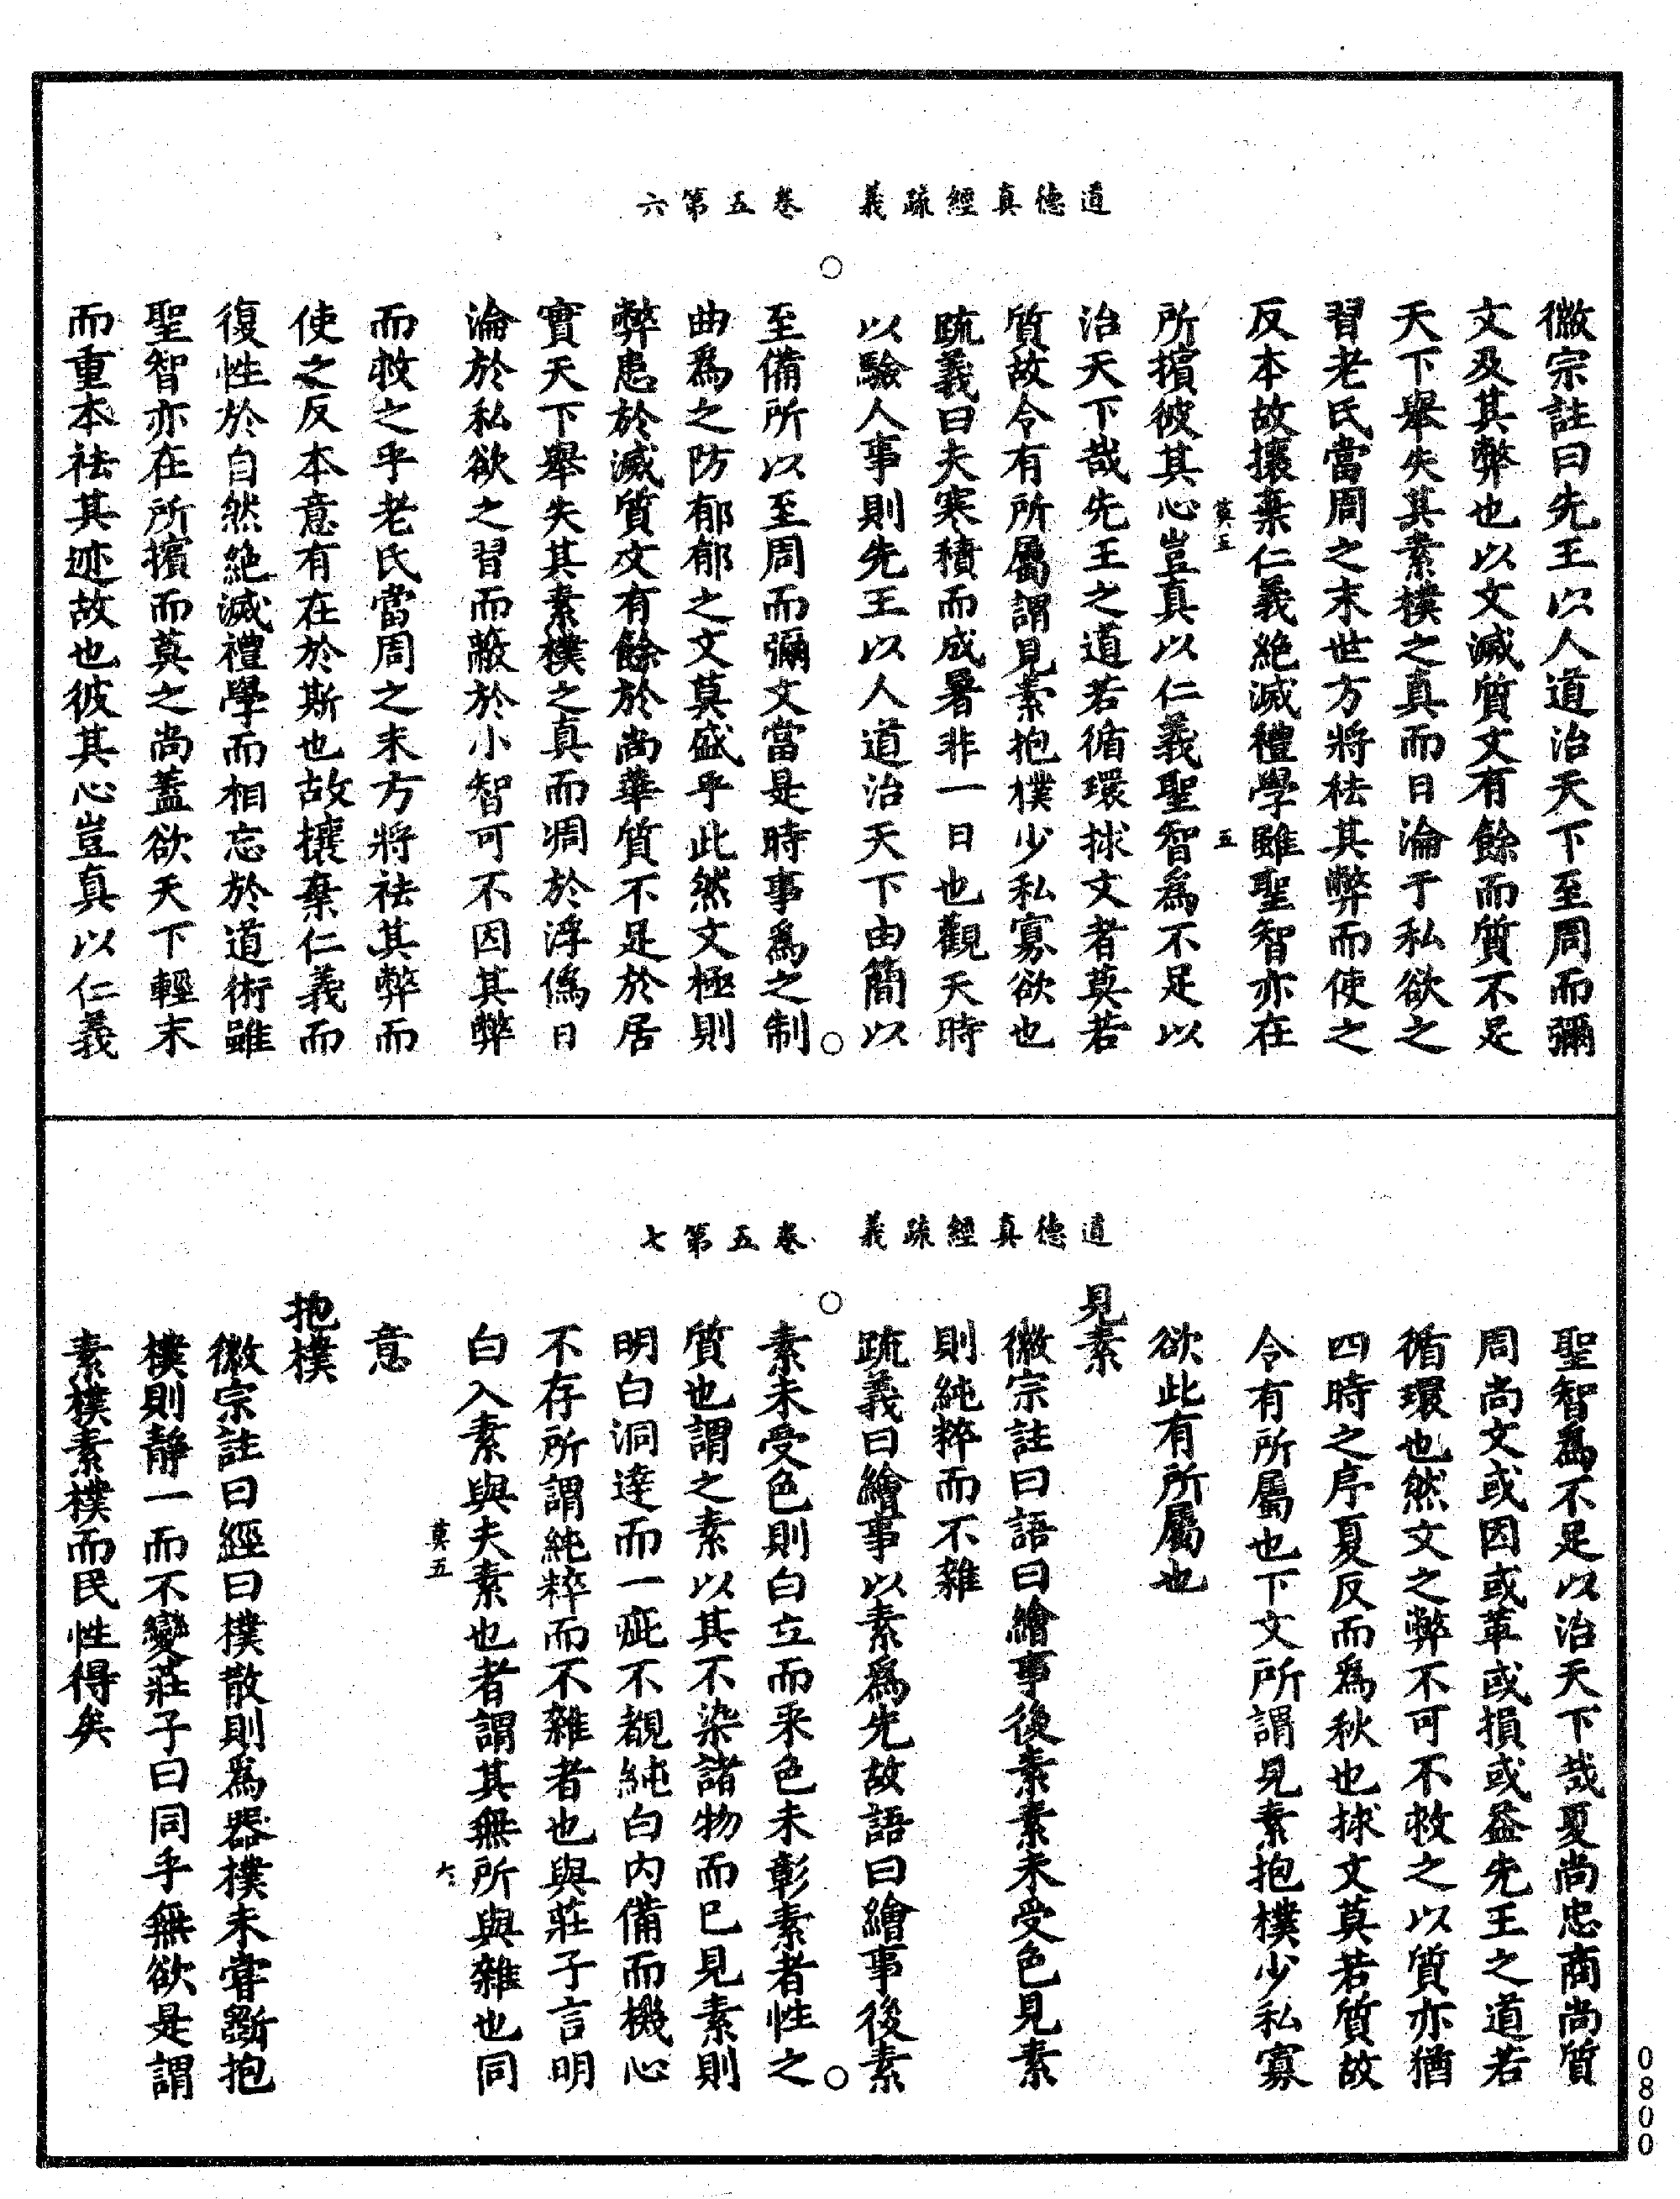 道德真經疏義　卷五第六
徽宗註曰先王以人道治天下至周而彌
文及其弊也以文滅質文有餘而質不足
天下舉失其素樸之真而日淪于私欲之
習老氏當周之末世方將袪其弊而使之
反本故攘棄仁義絶滅禮學雖聖智亦在
莫五　五
所擯彼其心豈真以仁義聖智爲不足以
治天下哉先王之道若循環捄文者莫若
質故令有所屬謂見素抱樸少私寡欲也
疏義曰夫寒積而成暑非一日也觀天時
以驗人事則先王以人道治天下由簡以
至備所以至周而彌文當是時事爲之制
曲爲之防郁郁之文莫盛乎此然文極則
弊患於滅質文有餘於尚華質不足於居
實天下舉失其素樸之真而凋於浮僞日
淪於私欲之習而蔽於小智可不因其弊
而救之乎老氏當周之末方將袪其弊而
使之反本意有在於斯也故攘棄仁義而
復性於自然絶滅禮學而相忘於道術雖
聖智亦在所擯而莫之尚蓋欲天下輕末
而重本袪其迹故也彼其心豈真以仁義
道德真經疏義　卷五第七
聖智爲不足以治天下哉夏尚忠商尚質
周尚文或因或革或損或益先王之道若
循環也然文之弊不可不救之以質亦猶
四時之序夏反而爲秋也捄文莫若質故
令有所屬也下文所謂見素抱樸少私寡
欲此有所屬也
見素
徽宗註曰語曰繪事後素素未受色見素
則純粹而不雜
疏義曰繪事以素爲先故語曰繪事後素
素未受色則白立而采色未彰素者性之
質也謂之素以其不染諸物而已見素則
明白洞達而一疵不覩純白内備而機心
不存所謂純粹而不雜者也與莊子言明
白入素與夫素也者謂其無所與雜也同
莫五　六
意
抱樸
徽宗註曰經曰樸散則爲器樸未嘗斲抱
樸則靜一而不變莊子曰同乎無欲是謂
素樸素樸而民性得矣
0800